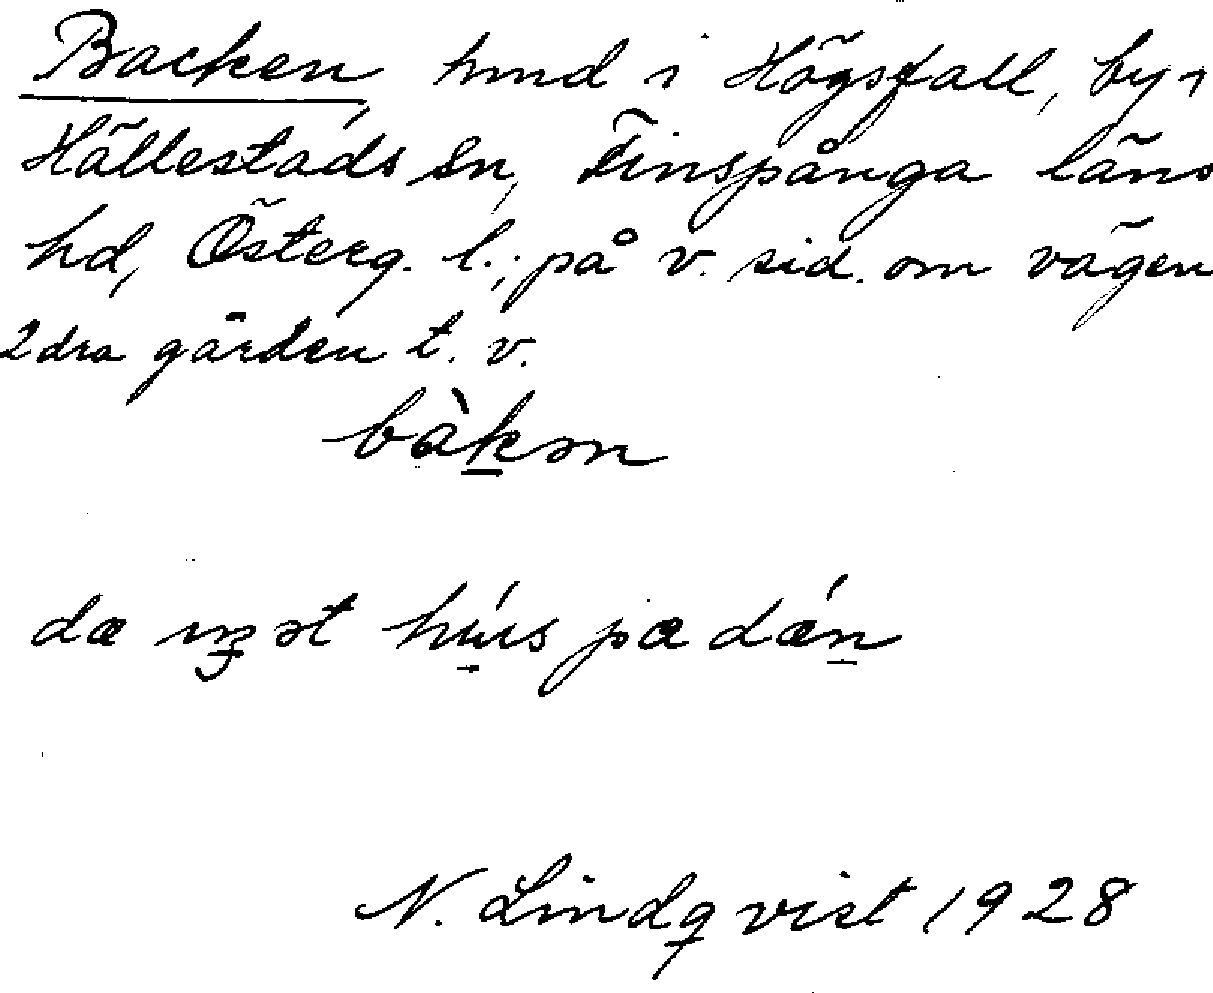 Backen, hmd i Högsfall, by i
Hällestads sn, Finspånga läns
hd, Österg. l.; på v. sid. om vägen
2dra gården t. v.
bàkən
hús pæ dæn
N. Lindqvist 1928